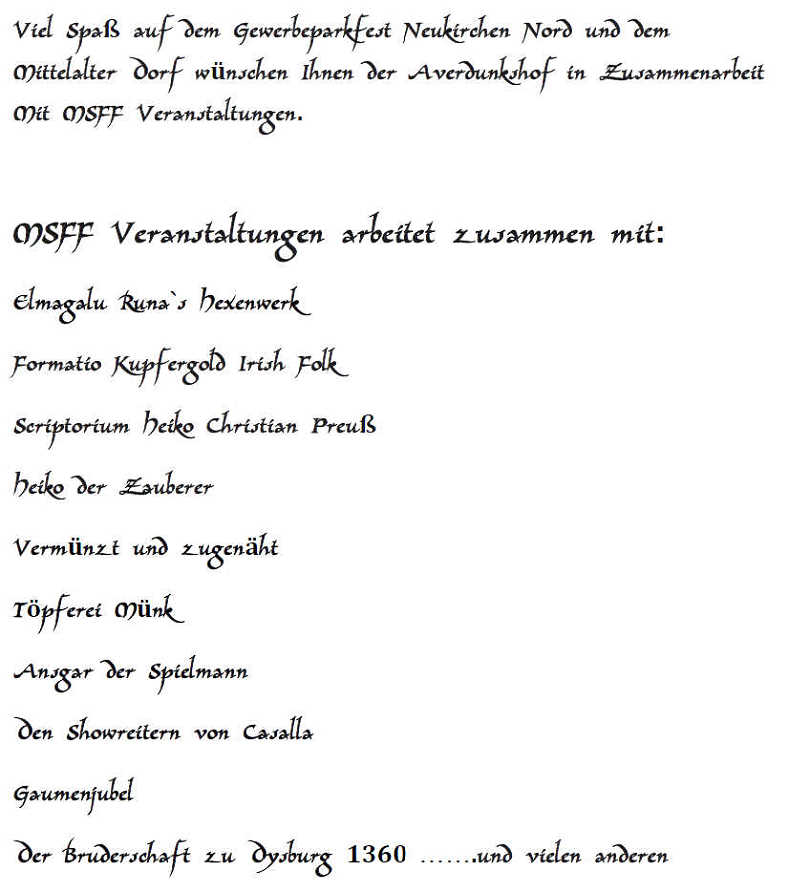 Viel Spaß auf dem Gewerbeparkfest Neukirchen Nord und dem
Mittelalter Dorf wünschen Ihnen der Averdunkshof in Zusammenarbeit
Mit MSFF Veranstaltungen.
MSFF Veranstaltungen arbeitet zusammen mit:
Elmagalu Runa`s Hexenwerk
Formatio Kupfergold Irish Folk
Scriptorium Heiko Christian Preuß
Heiko der Zauberer
Vermünzt und zugenäht
Töpferei Münk
Ansgar der Spielmann
Den Showreitern von Casalla
Gaumenjubel
Der Bruderschaft zu Dysburg 1360 …….und vielen anderen